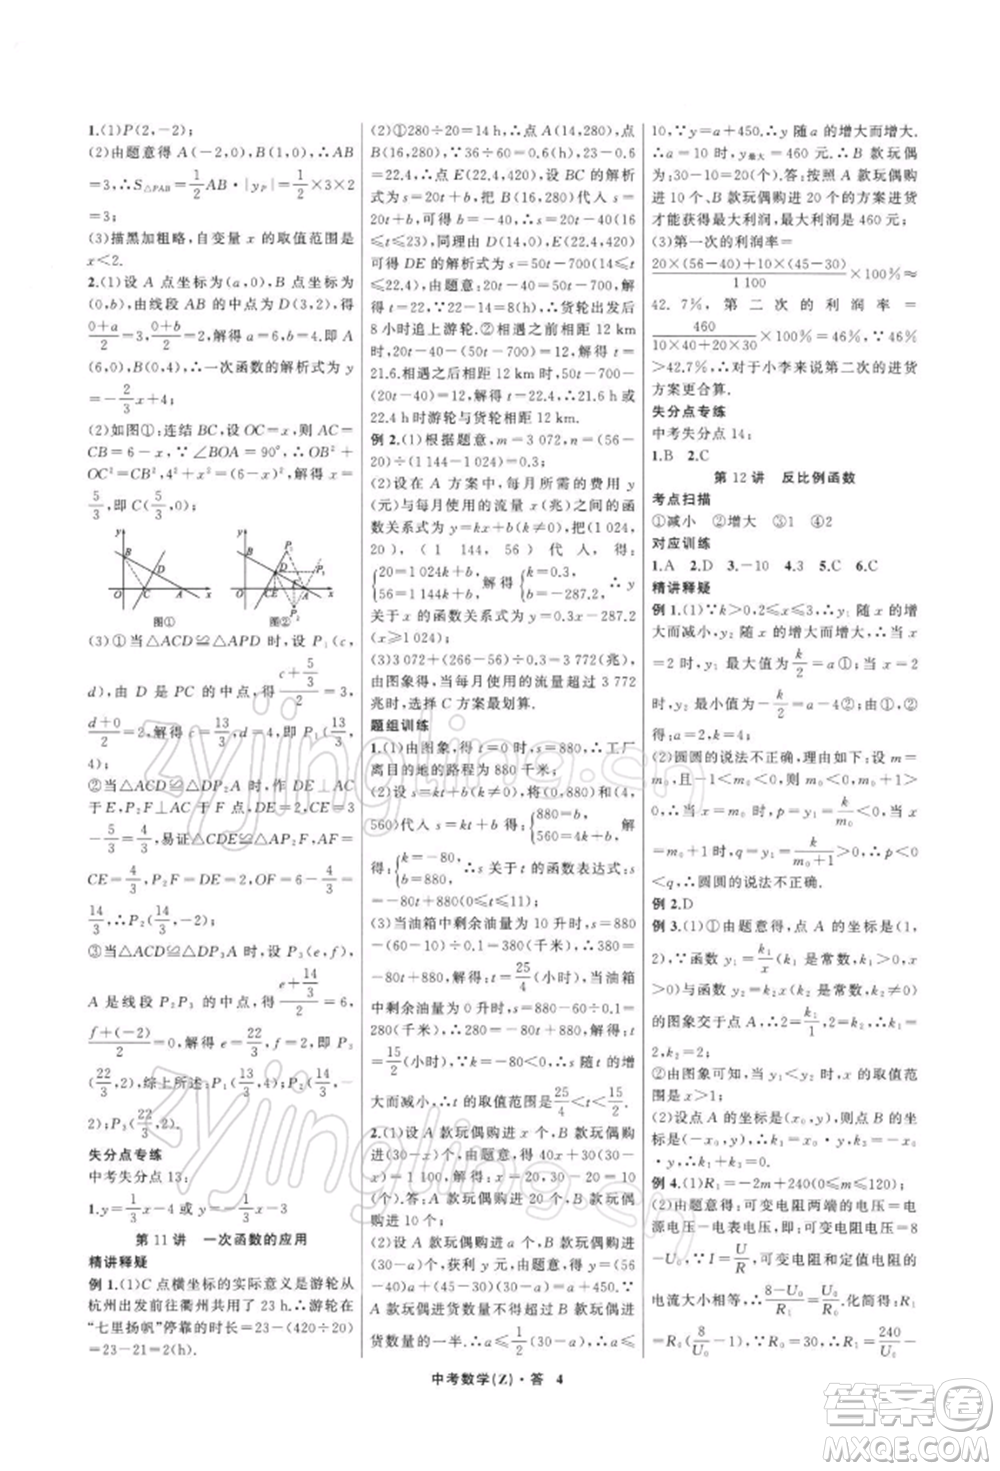 1.(1)P(2,-2);
(2)由题意得 A(-2,0),B(1,0)∴AB
=3,∴S△PAB=1/2AB·|yP|=1/2×3×2
=3;
(3)描黑加粗略,自变量 x 的取值范围是
x<2.
2.(1)设 A 点坐标为(a,0),B 点坐标为
(0,b),由线段 AB 的中点为 D(3,2),得
(0+a)/2=3,(0+b)/2=2,解得 a=6,b=4,∴A
(6,0),B(0,4),∴一次函数的解析式为 y=
-2/3x+4;
(2)如图①:连结 BC,设 OC=x,则 AC=
CB=6-x,∵∠BOA=90°,∴OB²+
OC²=CB²,4²+x²=(6-x)²,解得 x=
5/3,即 C(5/3,0);
y B D O C A x 图①
y B P1 D P3 O C E A x P2 图②
(3)①当△ACD≌△APD 时,设 P1(c,
d),由 D 是 PC 的中点,得(c+5/3)/2=3,
(d+0)/2=2,解得 c=13/3,d=4,∴P1(13/3,
4);
②当△ACD≌△DP2A 时,作 DE⊥AC
于 E,P2F⊥AC 于 F,DE=2,CE=3-
5/3=4/3,易证△CDE≌△AP2F,AF=
CE=4/3,P2F=DE=2,∴OF=6-4/3=
14/3,∴P2(14/3,-2);
③当△ACD≌△DP3A 时,设 P3(e,f),
A 是线段 P2P3 的中点,得(e+14/3)/2=6,
(f+(-2))/2=0,解得 e=22/3,f=2,∴P3
(22/3,2),综上所述:P1(13/3,4);P2(14/3,-
2);P3(22/3,2).
失分点专练
中考失分点 13:
1.y=1/3x-4 或 y=-1/3x-3
第 11 讲 一次函数的应用
精讲释疑
例 1.(1)C 点横坐标的实际意义是游轮从
杭州出发前往衢州共用了 23 h.∴游轮在
“七里扬帆”停靠的时长=23-(420÷20)
=23-21=2(h).
(2)①280÷20=14 h,∴点 A(14,280),点
B(16,280),∵36÷60=0.6(h),23-0.6
=22.4,∴点 E(22.4,420),设 BC 的解析
式为 s=20t+b,把 B(16,280)代入 s=20t
+b,可得 b=-40,∴s=20t-40(16≤t
≤23),同理由 D(14,0),E(22.4,420)
可得 DE 的解析式为 s=50t-700(14≤t≤
22.4),由题意:20t-40=50t-700,解得 t
=22,∵22-14=8(h),∴货轮出发后
8 小时追上游轮.②相遇之前相距 12 km
时,20t-40-(50t-700)=12,解得 t=
21.6.相遇之后相距 12 km 时,50t-700
-(20t-40)=12,解得 t=22.4,∴21.6 h 或
22.4 h时游轮与货轮相距 12 km.
例 2.(1)根据题意,m=3 072,n=(56-
20)÷(1 144-1 024)=0.3;
(2)设在 A 方案中,每月使用的费用 y
(元)与每月使用的流量 x(兆)之间的函
数关系式为 y=kx+b(k≠0),把(1 024,
20),(1 144,56)代入,得:
{20=1 024k+b,56=1 144k+b ∴{k=0.3,b=-287.2,∴y
关于 x 的函数关系式为 y=0.3x-287.2
(x≥1 024);
(3)3 072+(266-56)÷0.3=3 772(兆),
由图象得,当每月使用的流量超过 3 772
兆时,选择 C 方案最划算.
题组训练
1.(1)由图象,得 t=0 时,s=880,∴工厂
离目的地的路程为 880 千米;
(2)设 s=kt+b(k≠0),将(0,880)和(4,
560)代入 s=kt+b 得:{880=b,560=4k+b,解
得:{k=-80,b=880,∴s 关于 t 的函数表达式:s=
-80t+880(0≤t≤11);
(3)当油箱中剩余油量为 10 升时,s=880
-(60-10)÷0.1=380(千米),∴380=
-80t+880,解得:t=25/4(小时),当油箱
中剩余油量为 0 升时,s=880-60÷0.1=
280(千米),∴280=-80t+880,解得:t=
15/2(小时),∵k=-80<0,∴s 随 t 的增
大而减小,∴t 的取值范围是25/4<t<15/2.
2.(1)设 A 款玩偶购进 x 个,B 款玩偶购进
(30-x)个,由题意,得 40x+30(30-x)
=1 100,解得:x=20.30-20=
10(个).答:A 款玩偶购进 20 个,B 款玩偶
购进 10 个;
(2)设 A 款玩偶购进 a 个,B 款玩偶购进
(30-a)个,获利 y 元,由题意,得 y=(56
-40)a+(45-30)(30-a)=a+450.∵A
款玩偶进货数量不得超过 B 款玩偶进
货数量的一半.∴a≤1/2(30-a),∴a≤
10,∵y=a+450.∴y 随 a 的增大而增大.
∴a=10 时,y最大=460 元.∴B 款玩偶
为:30-10=20(个).答:按照 A 款玩偶购
进 10 个、B 款玩偶购进 20 个的方案进货
才能获得最大利润,最大利润是 460 元;
(3)第一次的利润率=
(20×(56-40)+10×(45-30))/1 100×100%≈
42.7%,第二次的利润率=
460/(10×40+20×30)×100%=46%,∵46%
>42.7%,∴对于小李来说第二次的进货
方案更合算.
失分点专练
中考失分点 14:
1.B 2.C
第 12 讲 反比例函数
考点扫描
①减小 ②增大 ③1 ④2
对应训练
1.A 2.D 3.-10 4.3 5.C 6.C
精讲释疑
例 1.(1)∵k>0,2≤x≤3,∴y1 随 x 的增
大而减小,y2 随 x 的增大而增大,∴当 x=
2 时,y1 最大值为k/2=a①;当 x=2
时,y2 最小值为-k/2=a-4②;由①,②
得:a=2,k=4;
(2)圆圆的说法不正确,理由如下:设 m=
m0,且-1<m0<0,则 m0<0,m0+1>0,
∴当 x=m0 时,p=y1=k/m0<0,当 x=
m0+1 时,q=y1=k/(m0+1)>0,∴p<0
<q,∴圆圆的说法不正确.
例 2.D
例 3.(1)①由题意得,点 A 的坐标是(1,
2),∵函数 y1=k1/x(k1 是常数,k1>0,x
>0)与函数 y2=k2x(k2 是常数,k2≠0)
的图象交于点 A,∴2=k1/1,2=k2,∴k1=
2,k2=2;
②由图象可知,当 y1<y2 时,x 的取值范
围是 x>1;
(2)设点 A 的坐标是(x0,y),则点 B 的坐
标是(-x0,y),∴k1=x0·y,k3=-x0·
y,∴k1+k3=0.
例 4.(1)R1=-2m+240(0≤m≤120);
(2)由题意得:可变电阻两端的电压=电
源电压-电表电压,即:可变电阻电压=8
-U0,∵I=U/R,可变电阻和定值电阻的
电流大小相等,∴(8-U0)/R1=U0/R0.化简得:R1
=R0(8/U0-1),∵R0=30,∴R1=240/U0-
中考数学(Z)·答 4
zyjingling.cn
zyjingling.cn
答案圈
MXQE.COM